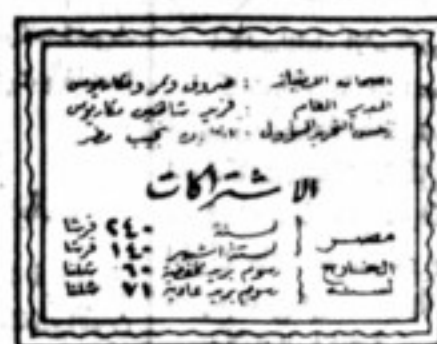 اصحاب الامتياز : صروف ونمر ومكاريوس
المدير العام : فريد شاهين مكاريوس
رئيس التحرير المسؤول : نجيب مطر
الاشتراكات
مصر
لسنة ٢٤٠ قرشا
لستة اشهر ١٤٠ قرشا
الخارج لسنة
رسوم بريد مخفضة ٦٠ شلنا
رسوم بريد عادية ٧١ شلنا